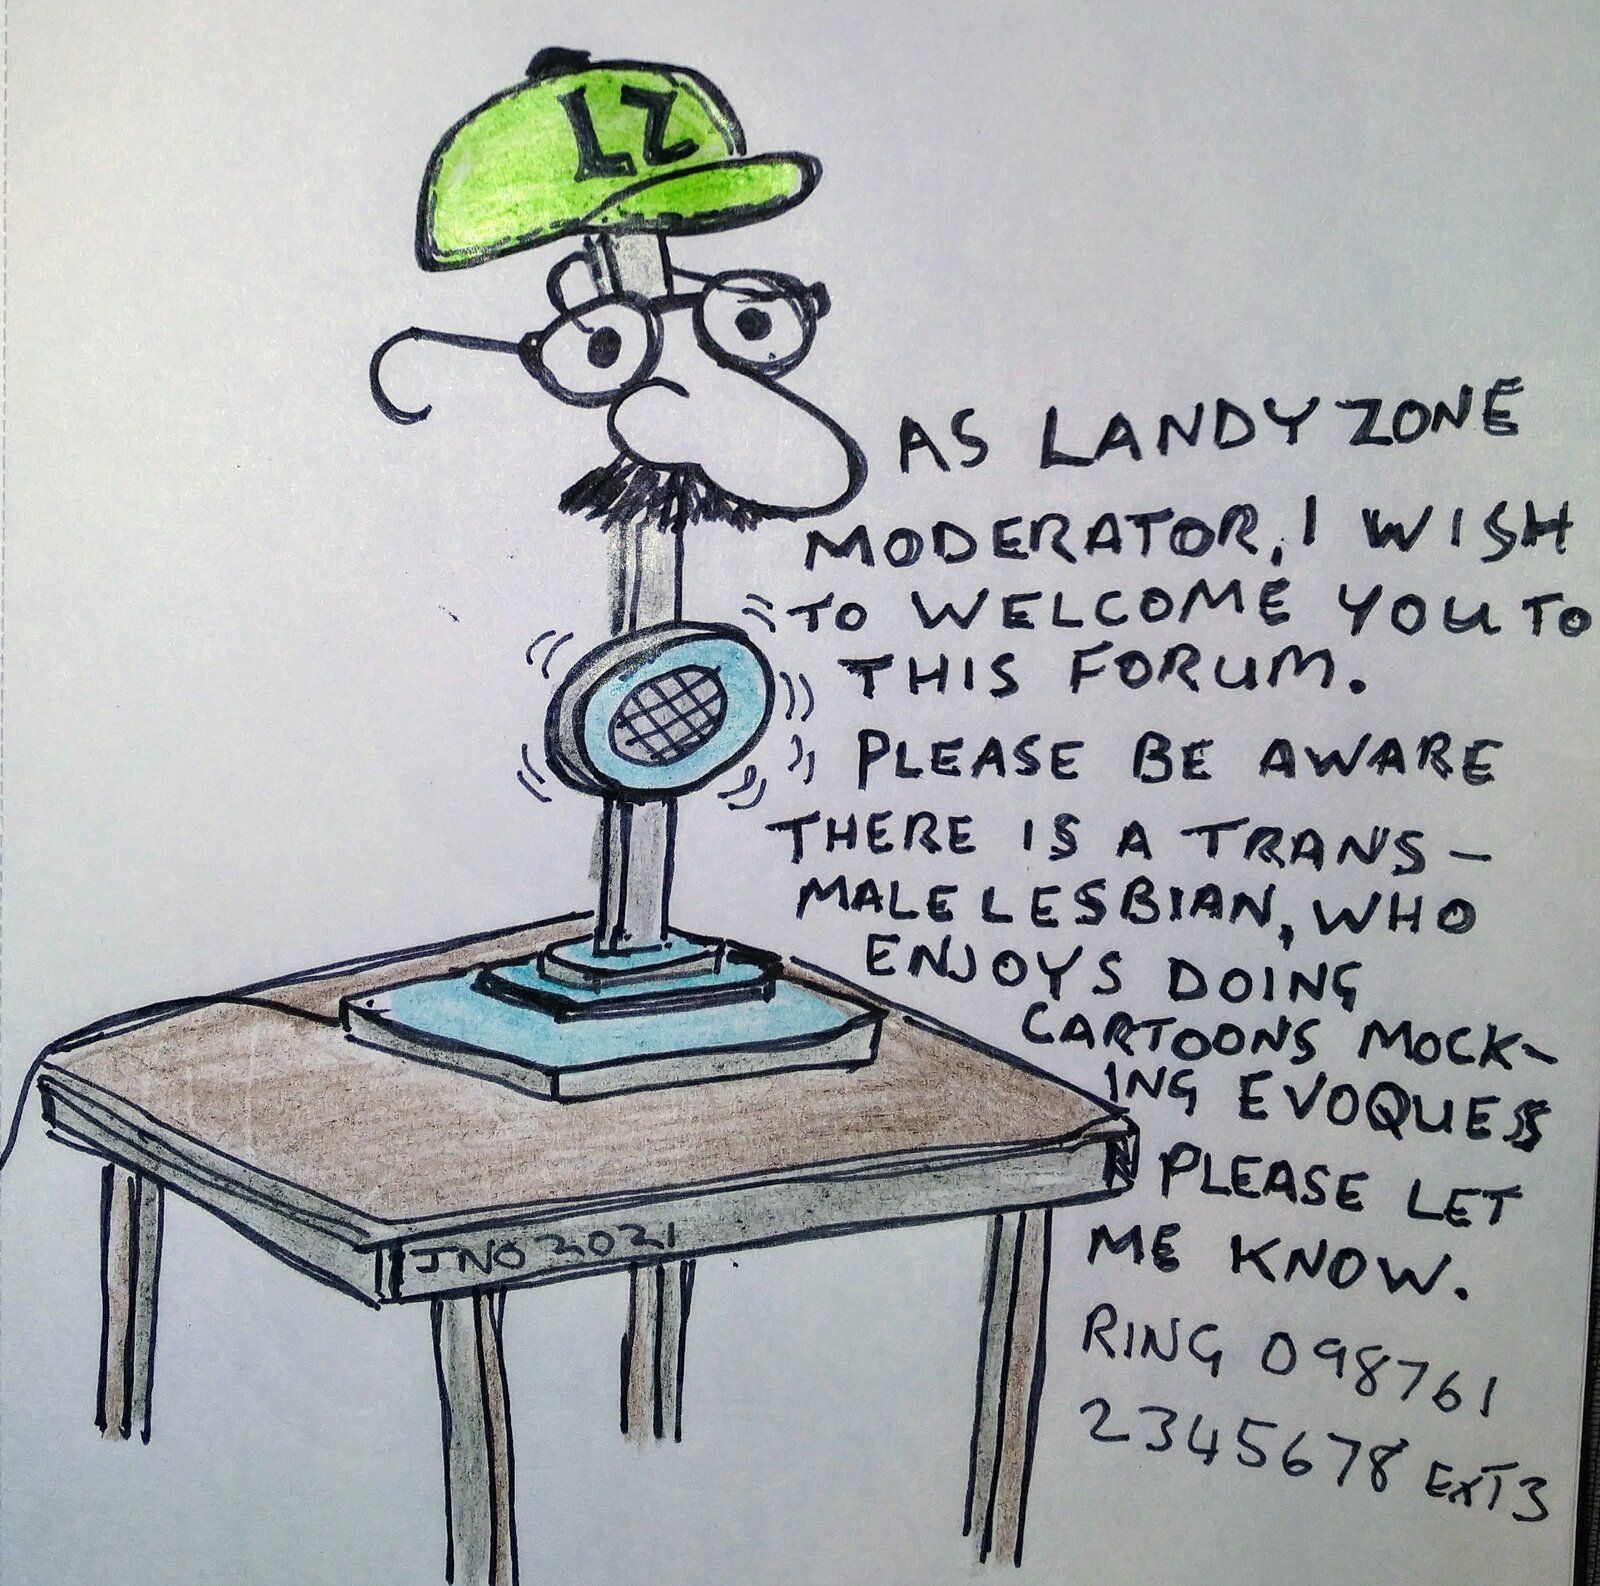 LZ
AS LANDYZONE
MODERATOR, I WISH
TO WELCOME YOU TO
THIS FORUM.
PLEASE BE AWARE
THERE IS A TRANS-
MALE LESBIAN, WHO
ENJOYS DOING
CARTOONS MOCK-
ING EVOQUES
PLEASE LET
ME KNOW.
RING 098761
2345678 EXT3
JNO 2021